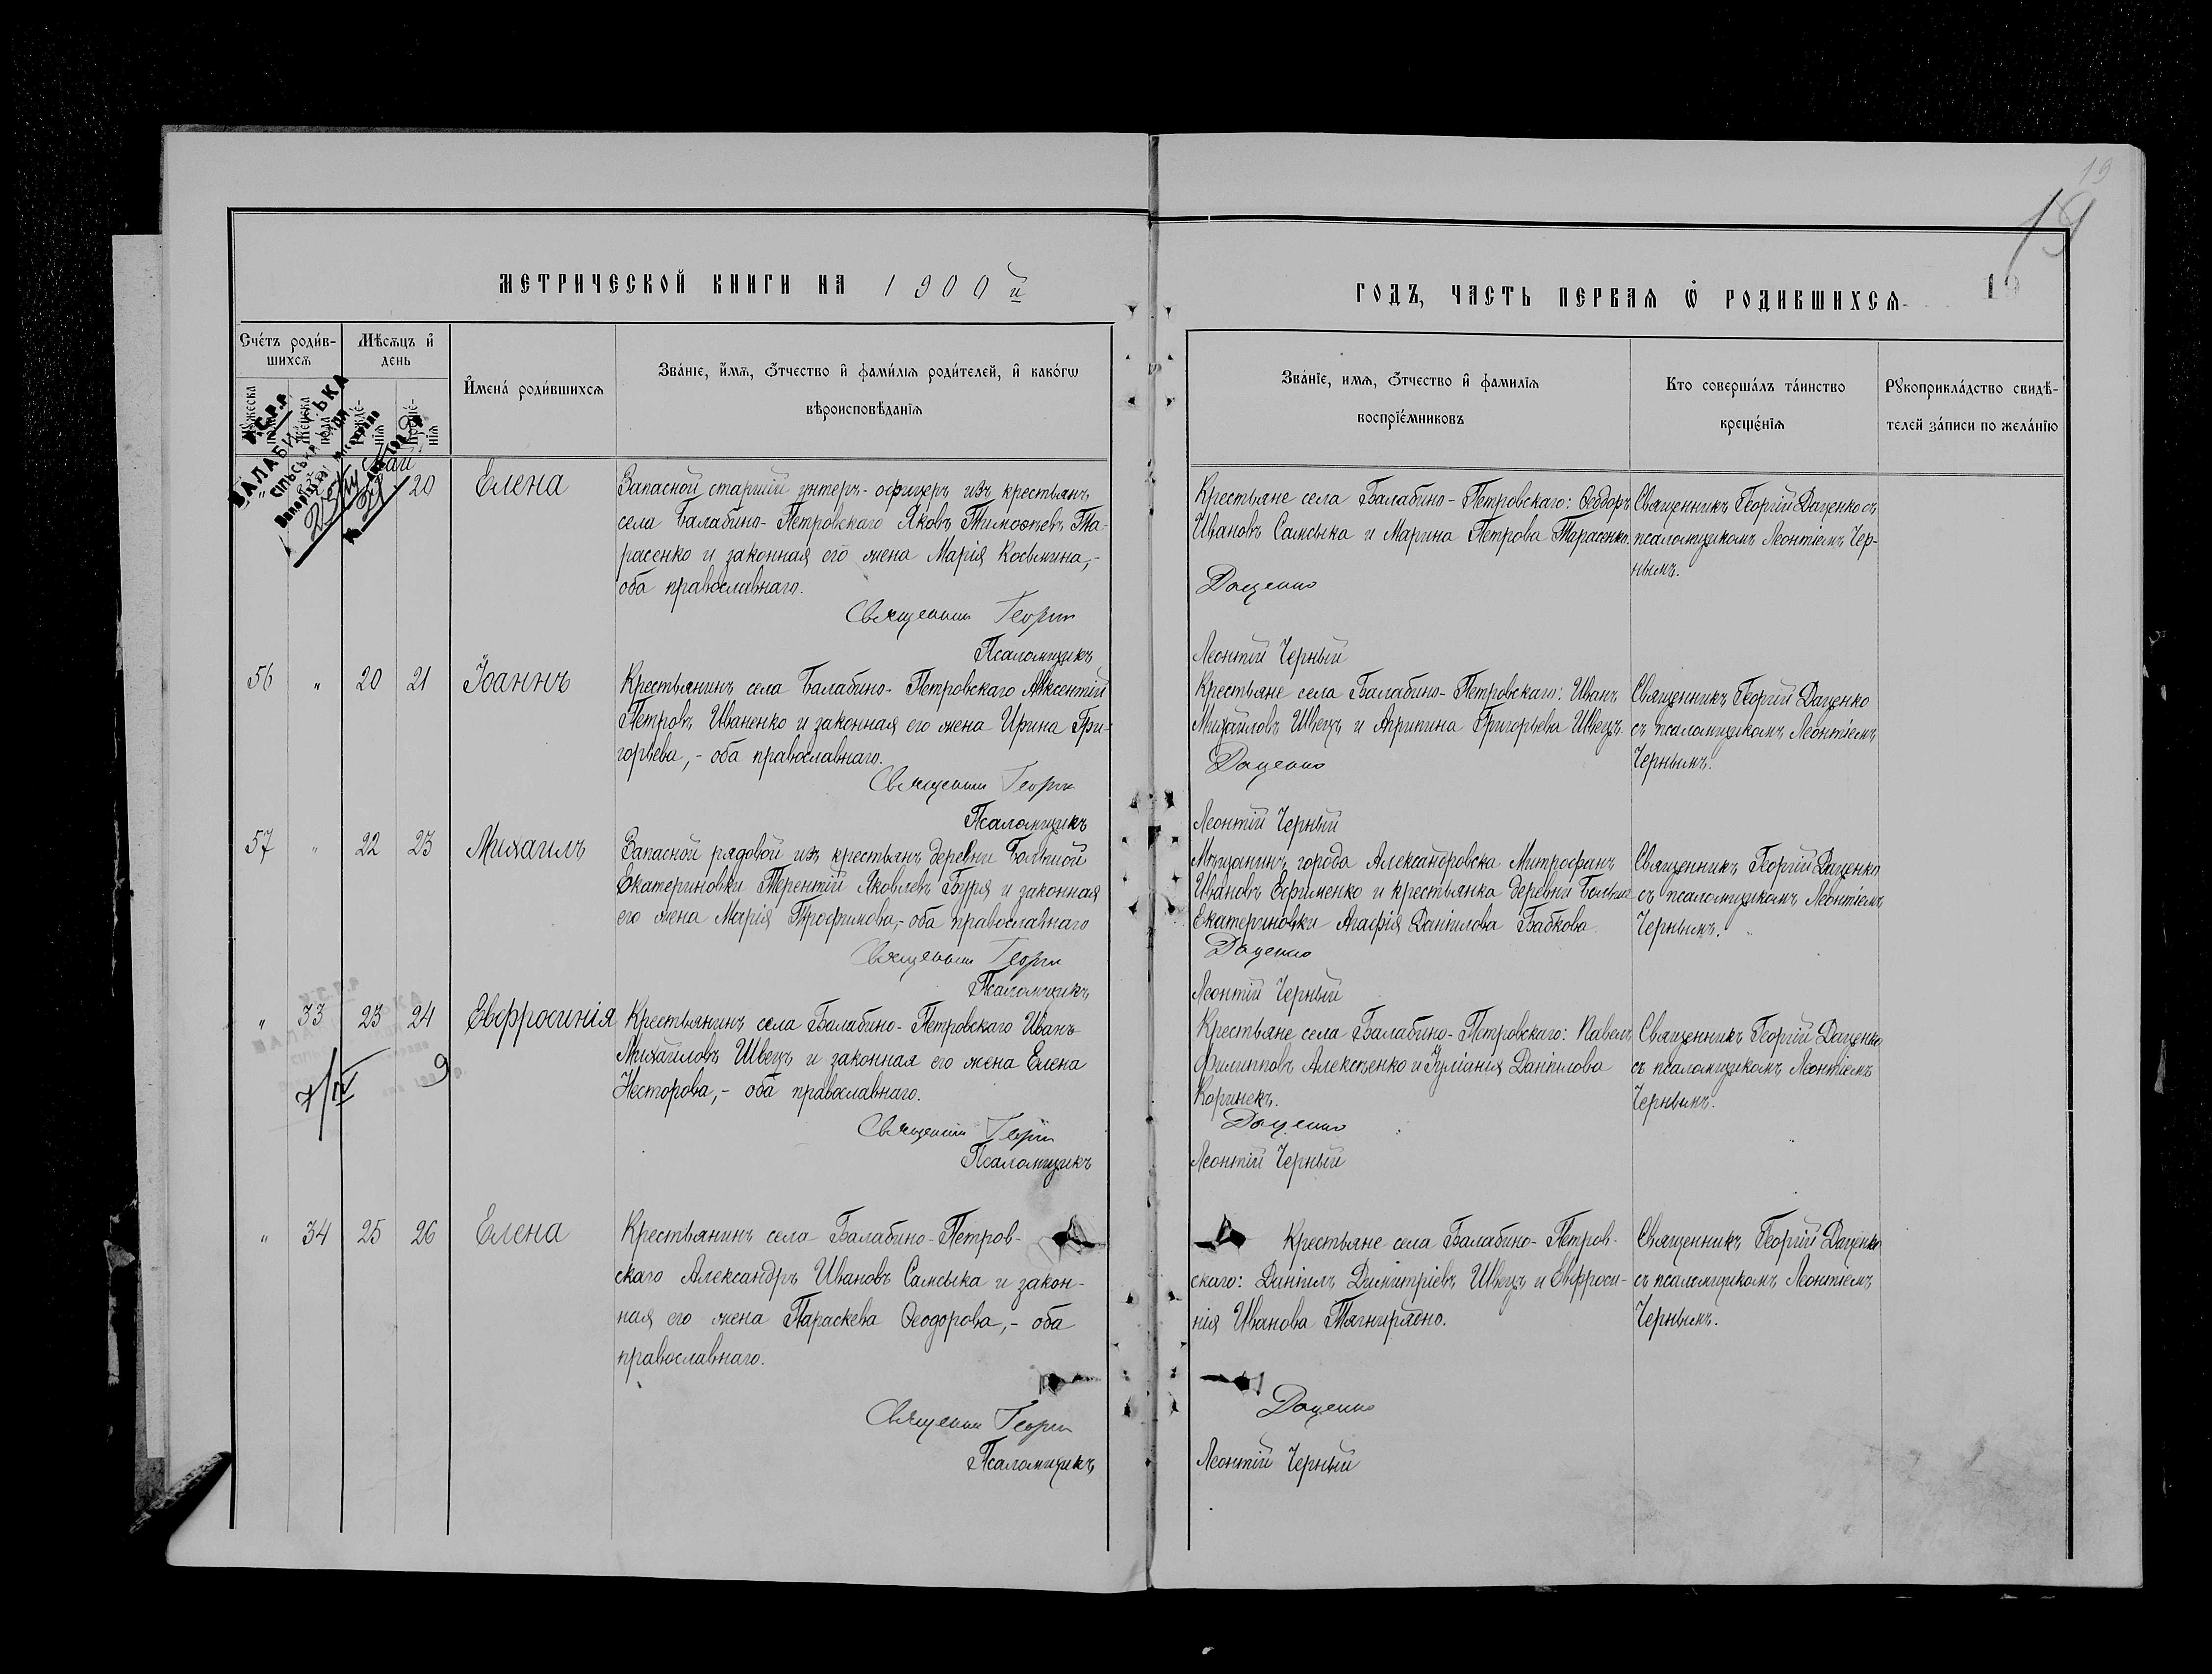 19
19
МЕТРИЧЕСКОЙ КНИГИ НА 1900й
ГОДЪ, ЧАСТЬ ПЕРВАѦ Ѡ РОДИВШИХСѦ
19
Счетъ родившихсѧ
Мѣсѧцъ и день
Имена родившихсѧ
Званіе, имѧ, отчество и фамиліѧ родителей, и какогѡ вѣроисповѣданіѧ
Званіе, имѧ, отчество и фамиліѧ воспріемниковъ
Кто совершалъ таинство крещеніѧ
Рꙋкоприкладство свидѣтелей записи по желанію
Май
20 Елена
Запасной старшій унтеръ-офицеръ изъ крестьянъ
села Балабино-Петровскаго Яковъ Тимоѳеевъ Та-
расенко и законная его жена Марія Косьмина,-
оба православнаго.
Священникъ Георгій
Псаломщикъ
Крестьяне села Балабино-Петровскаго: Ѳеодоръ
Ивановъ Самсыка и Марина Петрова Тарасенко.
Даценко
Леонтій Черный
Священникъ Георгій Даценко съ
псаломщикомъ Леонтіемъ Чер-
нымъ.
56 " 20 21 Іоаннъ
Крестьянинъ села Балабино-Петровскаго Авксентій
Петровъ Иваненко и законная его жена Ирина Гри-
горьева,- оба православнаго.
Священникъ Георгій
Псаломщикъ
Крестьяне села Балабино-Петровскаго: Иванъ
Михайловъ Швецъ и Агрипина Григорьева Швецъ.
Даценко
Леонтій Черный
Священникъ Георгій Даценко
съ псаломщикомъ Леонтіемъ
Чернымъ.
57 " 22 23 Михаилъ
Запасной рядовой изъ крестьянъ деревни Большой
Екатериновки Терентій Яковлевъ Буря и законная
его жена Марія Трофимова,- оба православнаго
Священникъ Георгій
Псаломщикъ
Мѣщанинъ города Александровска Митрофанъ
Ивановъ Ефименко и крестьянка деревни Больш
Екатериновки Агафія Даніилова Бабкова
Даценко
Леонтій Черный
Священникъ Георгій Даценко
съ псаломщикомъ Леонтіемъ
Чернымъ.
" 33 23 24 Евфросинія
Крестьянинъ села Балабино-Петровскаго Иванъ
Михайловъ Швецъ и законная его жена Елена
Несторова,- оба православнаго.
Священникъ Георгій
Псаломщикъ
Крестьяне села Балабино-Петровскаго: Павелъ
Филипповъ Алексѣенко и Іуліанія Даніилова
Коринекъ.
Даценко
Леонтій Черный
Священникъ Георгій Даценко
съ псаломщикомъ Леонтіемъ
Чернымъ.
" 34 25 26 Елена
Крестьянинъ села Балабино-Петров-
скаго Александръ Ивановъ Самсыка и закон-
ная его жена Параскева Ѳеодорова,- оба
православнаго.
Священникъ Георгій
Псаломщикъ
Крестьяне села Балабино-Петров-
скаго: Даніилъ Димитріевъ Швецъ и Евфроси-
нія Иванова Тягнирядно.
Даценко
Леонтій Черный
Священникъ Георгій Даценко
съ псаломщикомъ Леонтіемъ
Чернымъ.